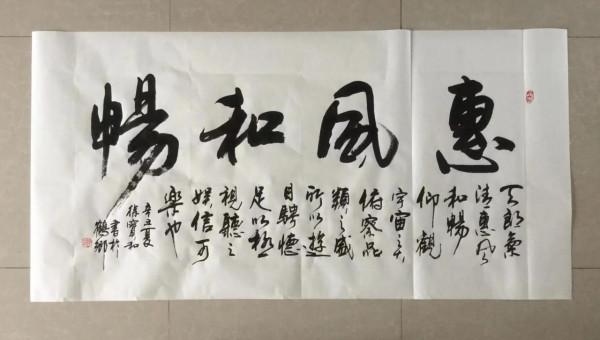 惠風和暢
天朗氣
清惠風
和暢
仰觀
宇宙之大
俯察品
類之盛
所以遊
目騁懷
足以極
視聽之
娛信可
樂也
辛丑夏
徐寶和
書於
鶴鄉